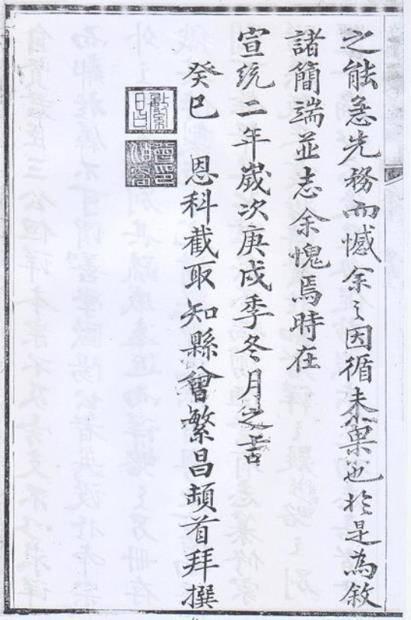 之能急先務而憾余之因循未果也於是為敘
諸簡端並志余愧焉時在
宣統二年歲次庚戌季冬月之吉
癸巳　恩科截取知縣曾繁昌頓首拜撰